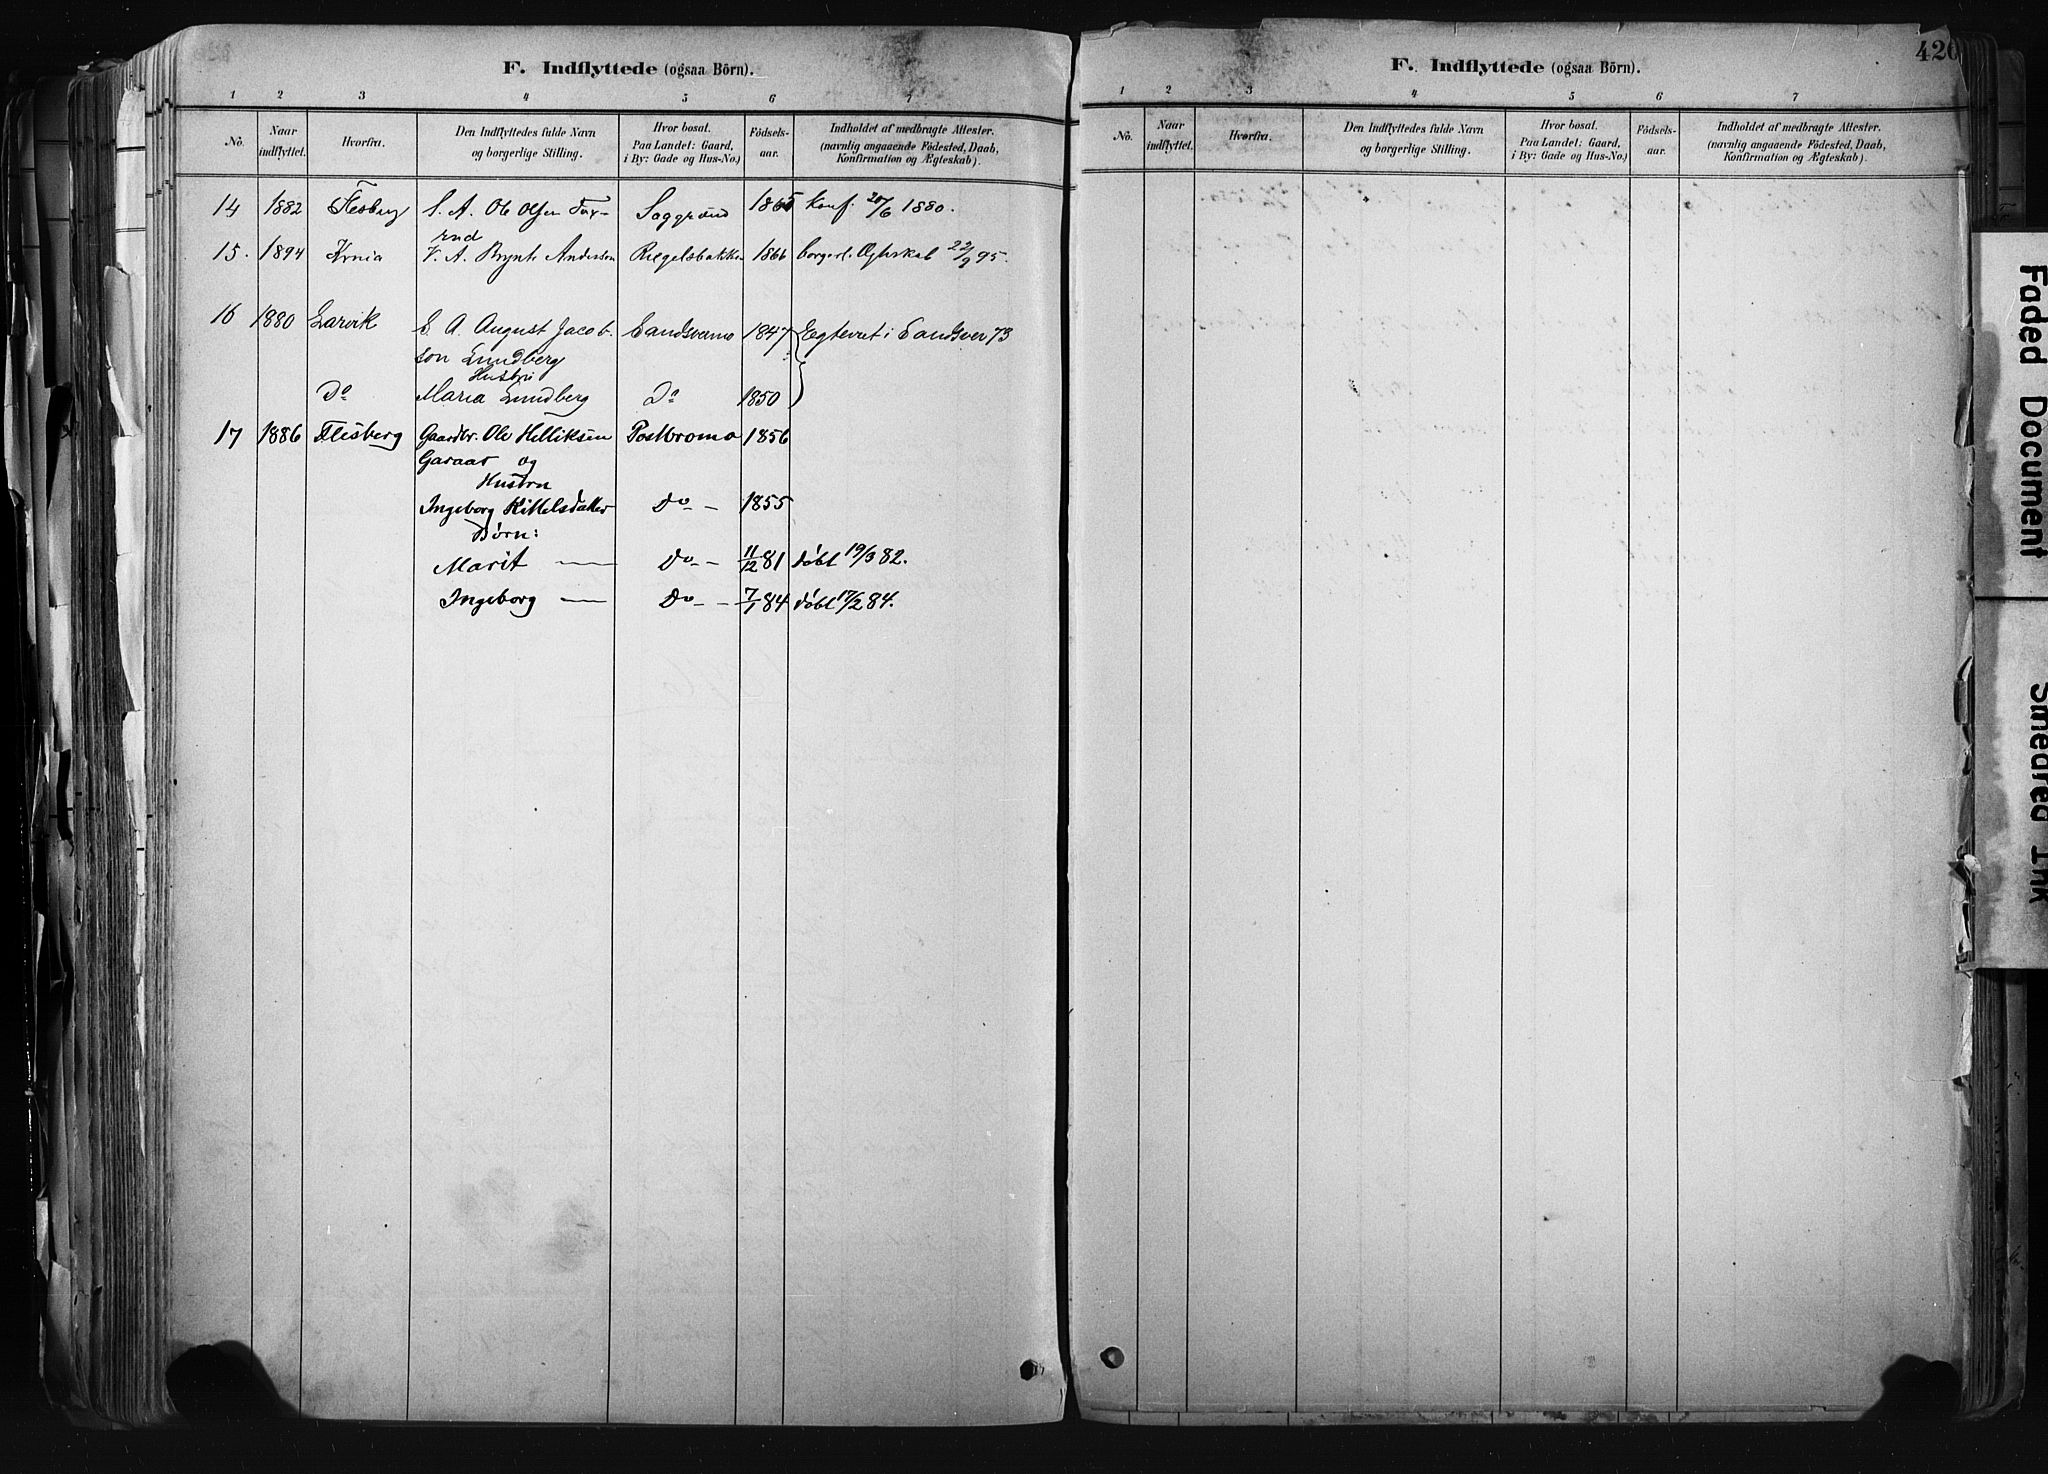 F. Indflyttede (ogsaa Börn).
1 2 3 4 5 6 7
No. Naar indflyttet. Hvorfra. Den Indflyttedes fulde Navn og borgerlige Stilling. Hvor bosat. Paa Landet: Gaard, i By: Gade og Hus-No.) Födsels-aar. Indholdet af medbragte Attester. (navnlig angaaende Födested, Daab, Konfirmation og Ægteskab).
14 1882 Flesberg S. A. Ole Olsen Fux- Saggrend 1865 Konf. 20/6 1880.
rud
15. 1894 Krnia V. A. Brynte Andersen Riegelsbakken 1866 borgerl. Ægteskab 22/9 95.
16 1880 Larvik S. A. August Jacob- Sandsværmo 1847 Egteviet i Sandsver 73
son Lundberg
Hustru
Do Maria Lundberg Do 1850
17 1886 Flesberg Gaardbr. Ole Helliksen Postbromo 1856
Garaas og
Hustru
Ingeborg Kittelsdatter Do - 1855
Børn:
Marit — Do - - 11/12 81 døbt 19/3 82.
Ingeborg — Do - - 7/1 84 døbt 17/2 84.
F. Indflyttede (ogsaa Börn).
420
1 2 3 4 5 6 7
No. Naar indflyttet. Hvorfra. Den Indflyttedes fulde Navn og borgerlige Stilling. Hvor bosat. Paa Landet: Gaard, i By: Gade og Hus-No.) Födsels-aar. Indholdet af medbragte Attester. (navnlig angaaende Födested, Daab, Konfirmation og Ægteskab).
Faded Document
Smeared Ink